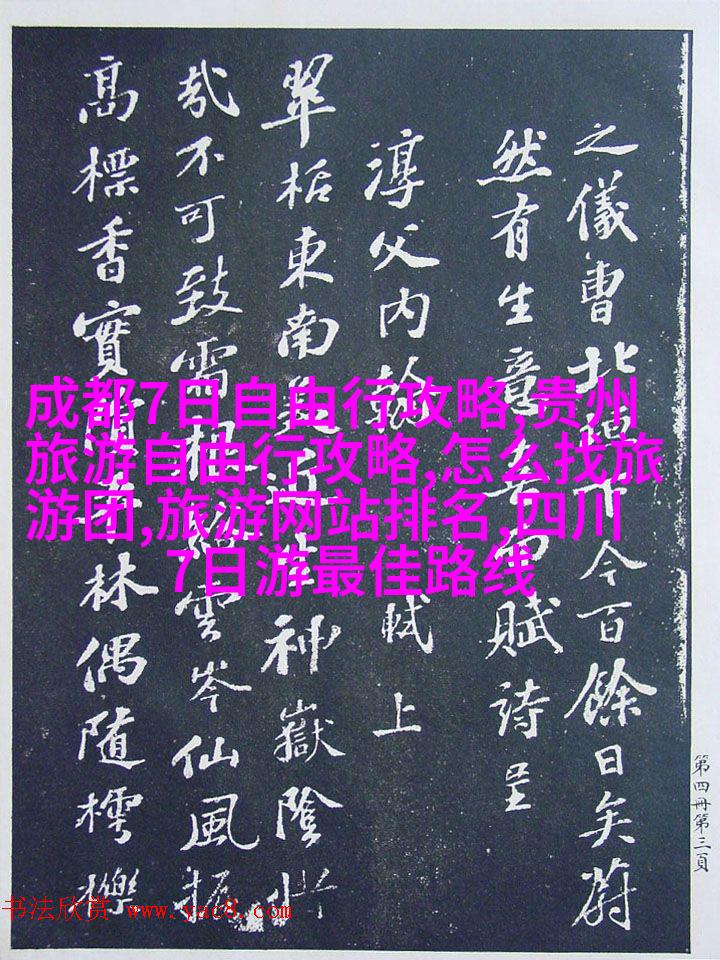 之儀曹北垣下今百餘日矣蔚
然有生意喜而賦詩呈
淳父內翰 軾上
翠栝東南美近生神嶽陰惜
哉不可致霜根絡雲岑仙風振
高標香實隕平林偶隨樗櫟
第四冊第三頁
成都7日自由行攻略,贵州
旅游自由行攻略,怎么找旅
游团,旅游网站排名,四川
7日游最佳路线
书法欣赏 www.yac8.com